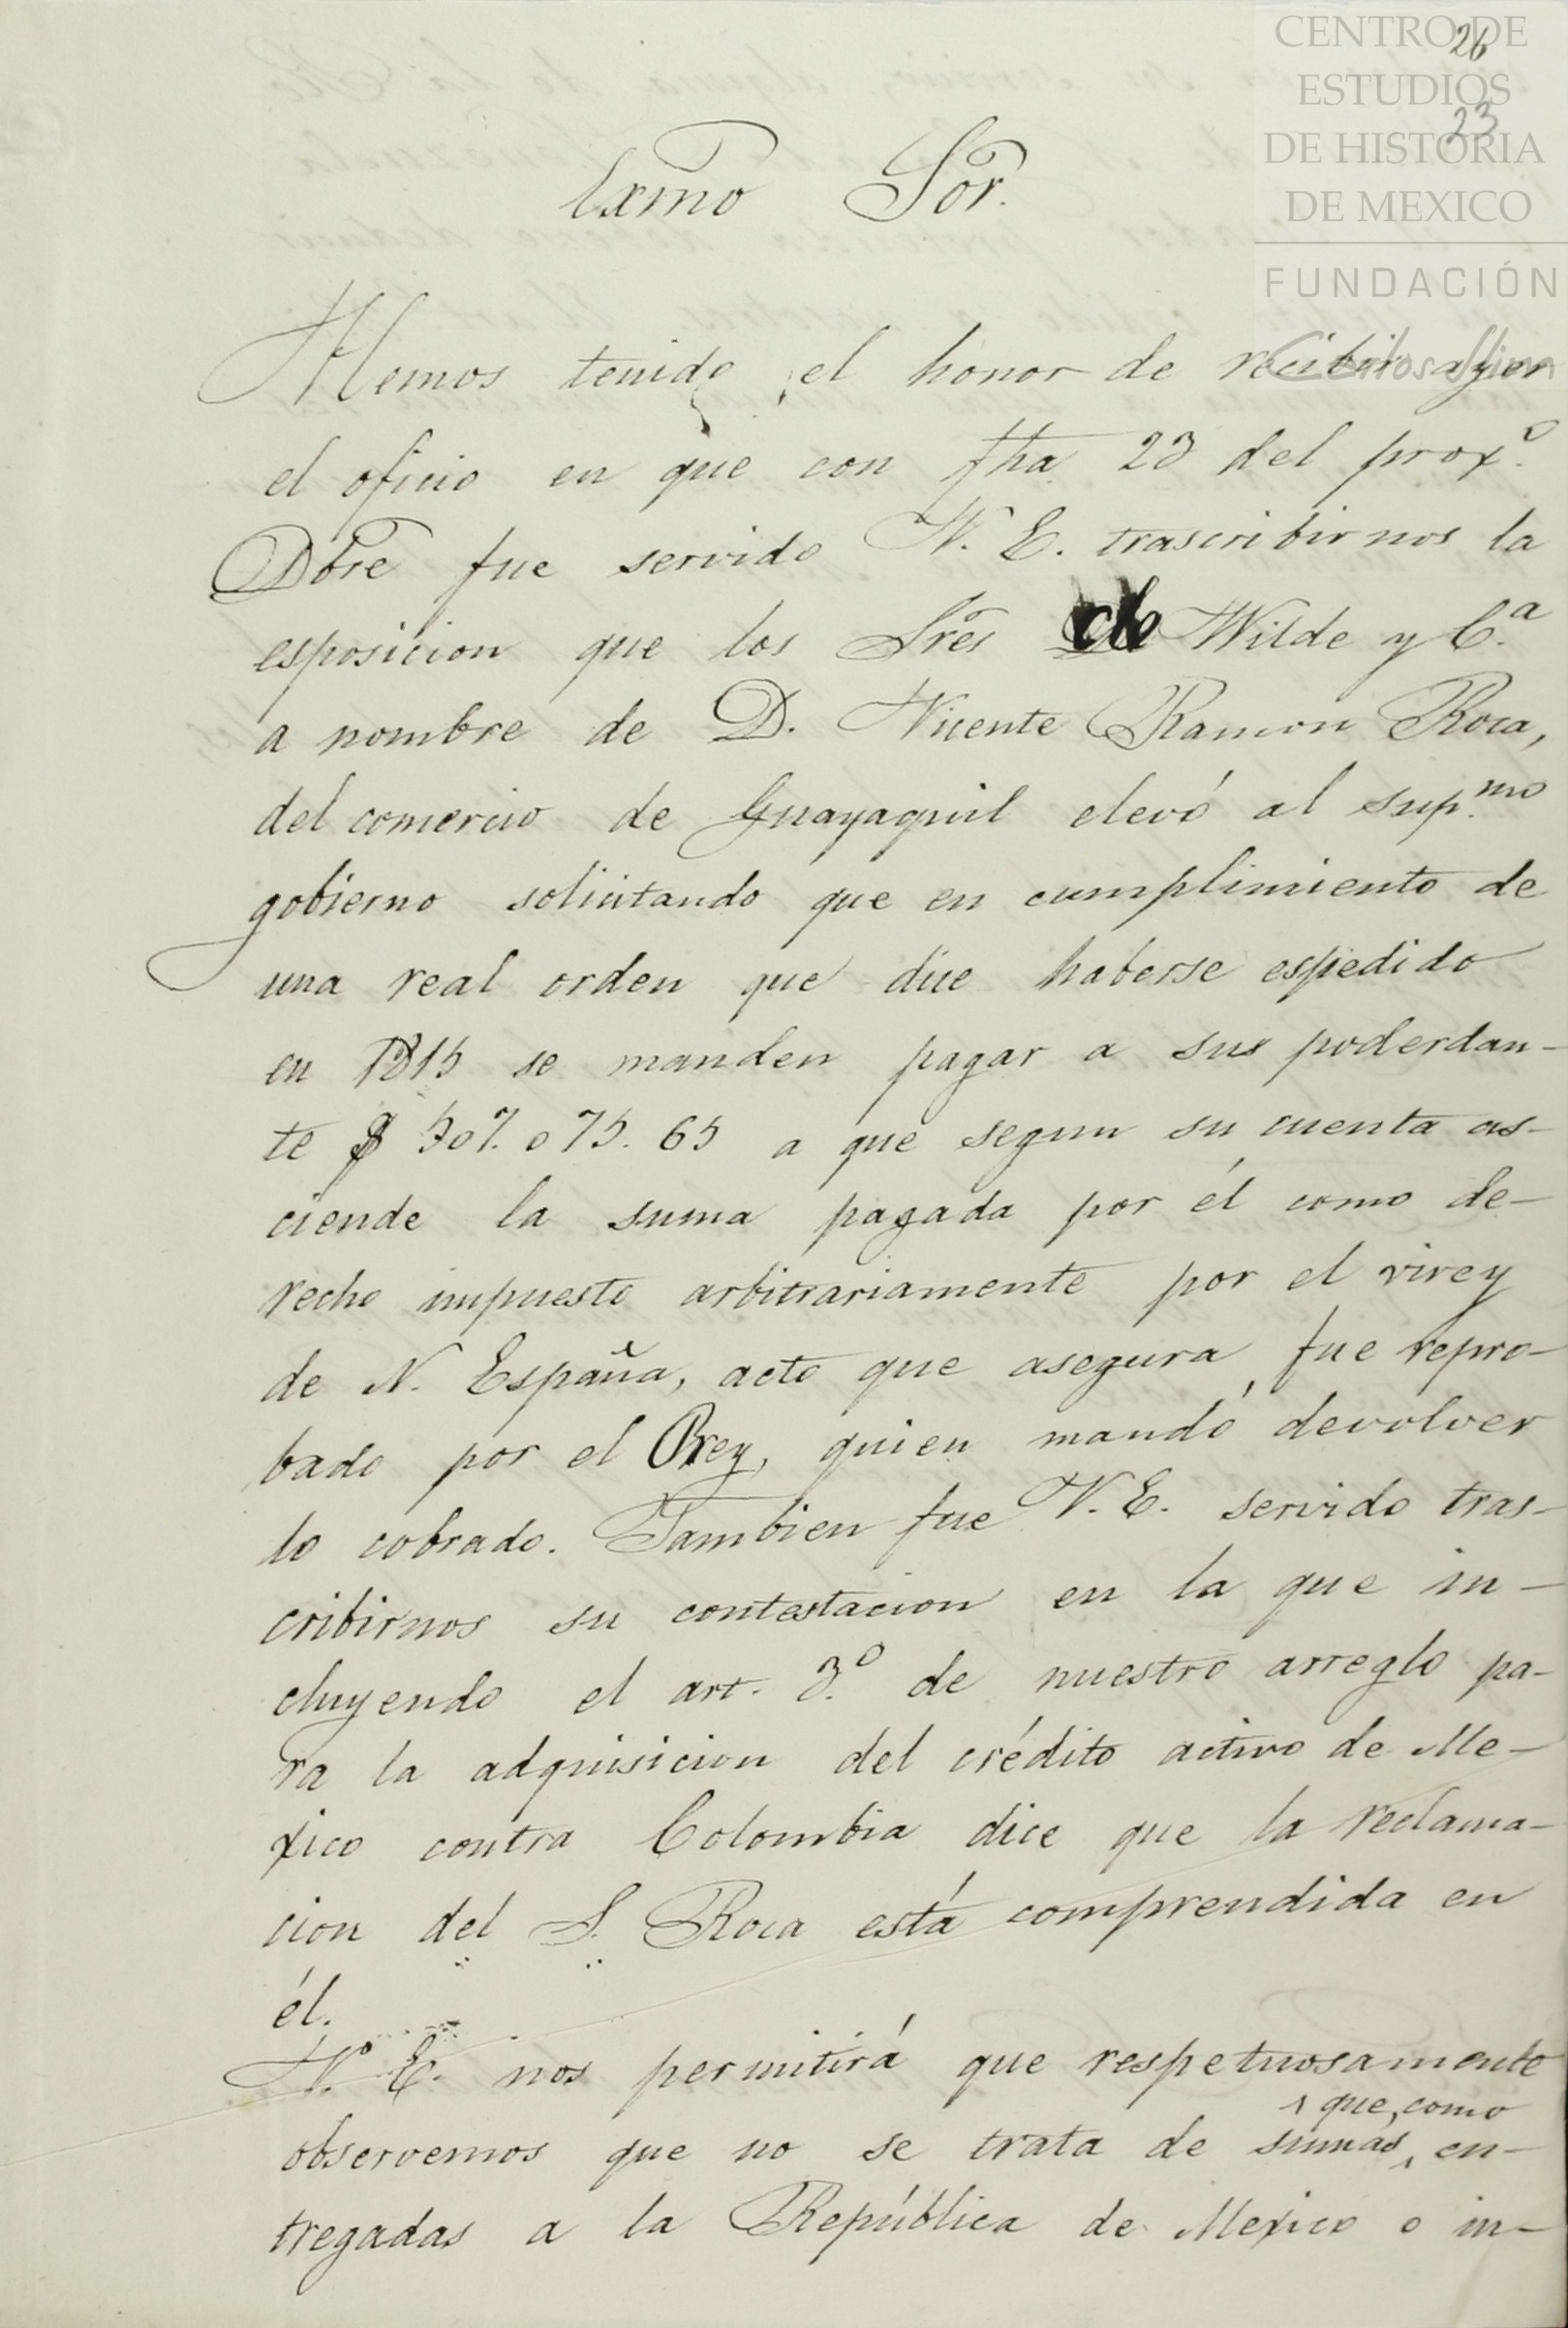 CENTRO DE
ESTUDIOS
DE HISTORIA
DE MEXICO
FUNDACIÓN
Carlos Slim
26
23
Exmo Sor.
Hemos tenido el honor de recibir ayer
el oficio en que con fha 23 del proxº.
Dbre fue servido V. E. trascribirnos la
esposicion que los Sres de Wilde y C.ª
a nombre de D. Vicente Ramon Roca,
del comercio de Guayaquil elevó al sup.mo
gobierno solicitando que en cumplimiento de
una real orden que dice haberse espedido
en 1815 se manden pagar a sus poderdan-
te $ a que segun su cuenta as-
ciende la suma pagada por él como de-
recho impuesto arbitrariamente por el virey
de N. España, acto que asegura fue repro-
bado por el Rey, quien mandó devolver
lo cobrado. Tambien fue V. E. servido tras-
cribirnos su contestacion en la que in-
cluyendo el art. 3.º de nuestro arreglo pa-
ra la adquisicion del crédito activo de Me-
xico contra Colombia dice que la reclama-
cion del S. Roca está comprendida en
él.
V. E. nos permitirá que respetuosamente
observemos que no se trata de sumas que, como en-
tregadas a la República de Mexico o in-